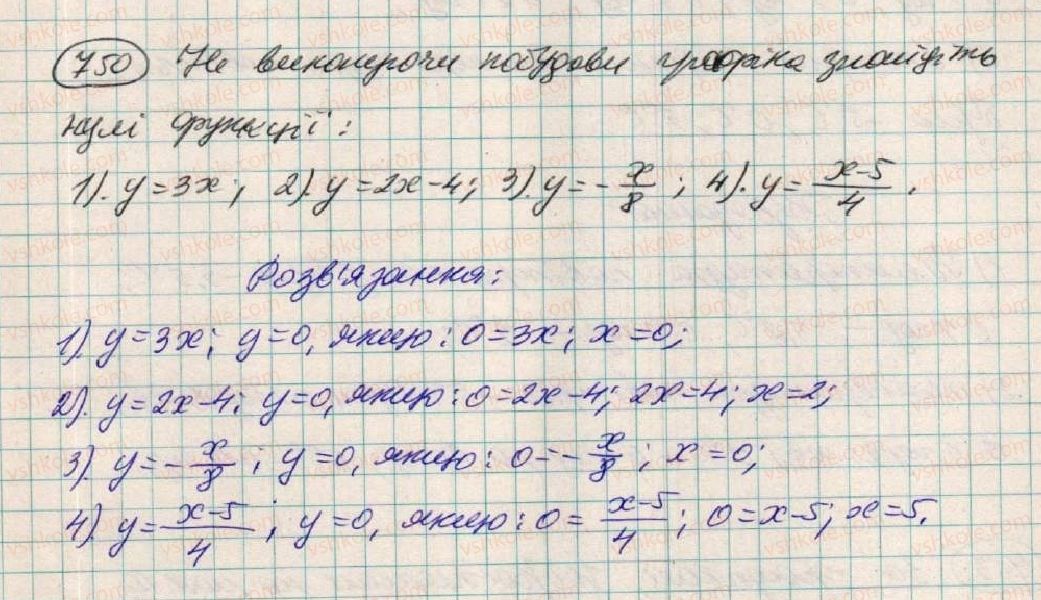 750 Не виконуючи побудови графіка знайдіть
нулі функції:
1). y = 3x; 2). y = 2x - 4; 3). y = - x/8; 4). y = (x-5)/4.
Розв'язання:
1). y = 3x; y = 0, якщо: 0 = 3x; x = 0;
2). y = 2x - 4; y = 0, якщо: 0 = 2x - 4; 2x = 4; x = 2;
3). y = - x/8; y = 0, якщо: 0 = - x/8; x = 0;
4) y = (x-5)/4; y = 0, якщо: 0 = (x-5)/4; 0 = x - 5; x = 5.